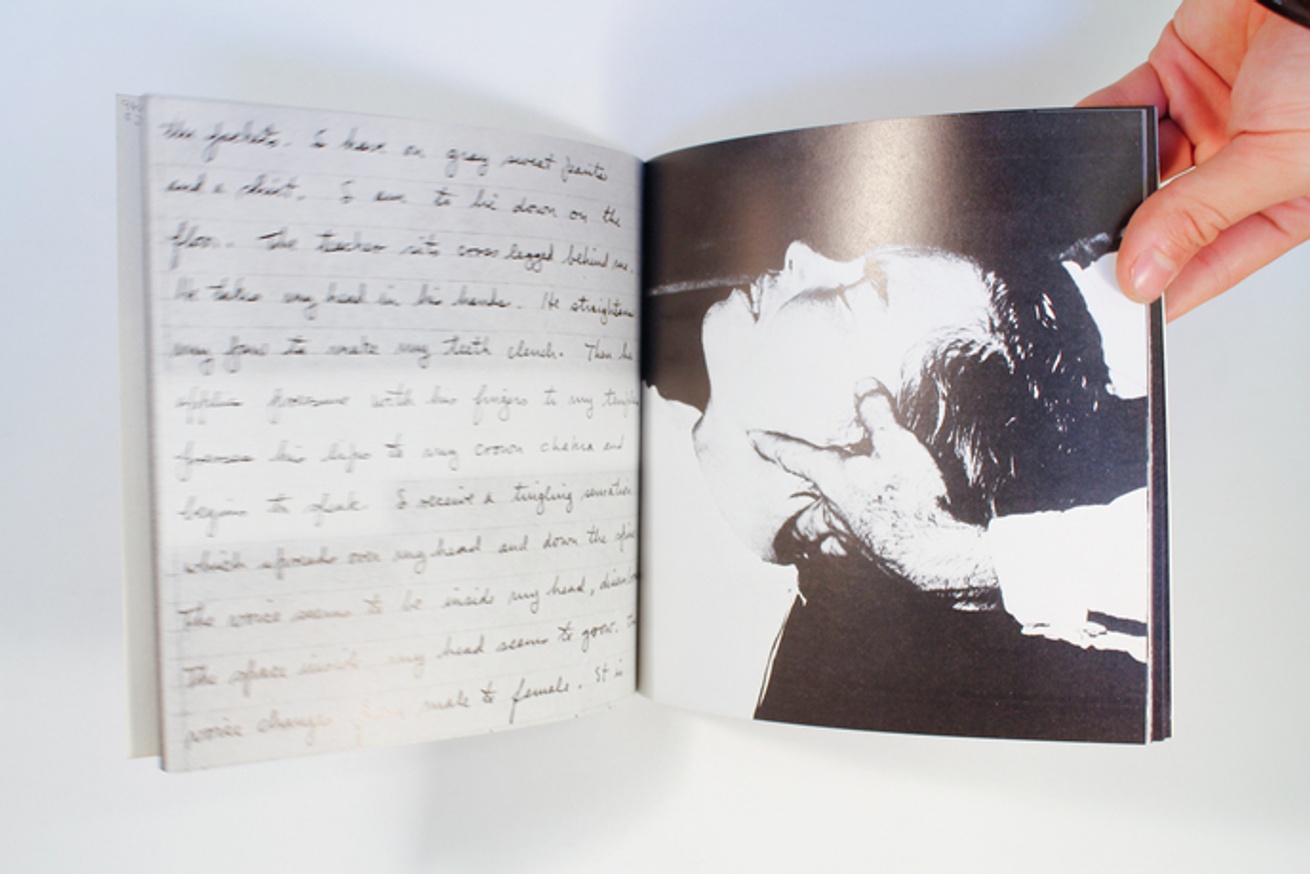 the jackets. I have on gray sweat pants
and a shirt. I am to lie down on the
floor. The teacher sits cross legged behind me.
He takes my head in his hands. He straightens
my jaw to make my teeth clench. Then he
applies pressure with his fingers to my temples
presses his lips to my crown chakra and
begins to speak I receive a tingling sensation
which spreads over my head and down the spine
The voice seems to be inside my head,
The space inside my head seems to grow.
voice changes from male to female. It is